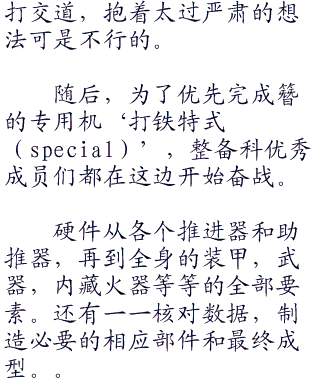 打交道，抱着太过严肃的想
法可是不行的。
随后，为了优先完成簪
的专用机‘打铁特式
（special）’，整备科优秀
成员们都在这边开始奋战。
硬件从各个推进器和助
推器，再到全身的装甲，武
器，内藏火器等等的全部要
素。还有一一核对数据，制
造必要的相应部件和最终成
型。。